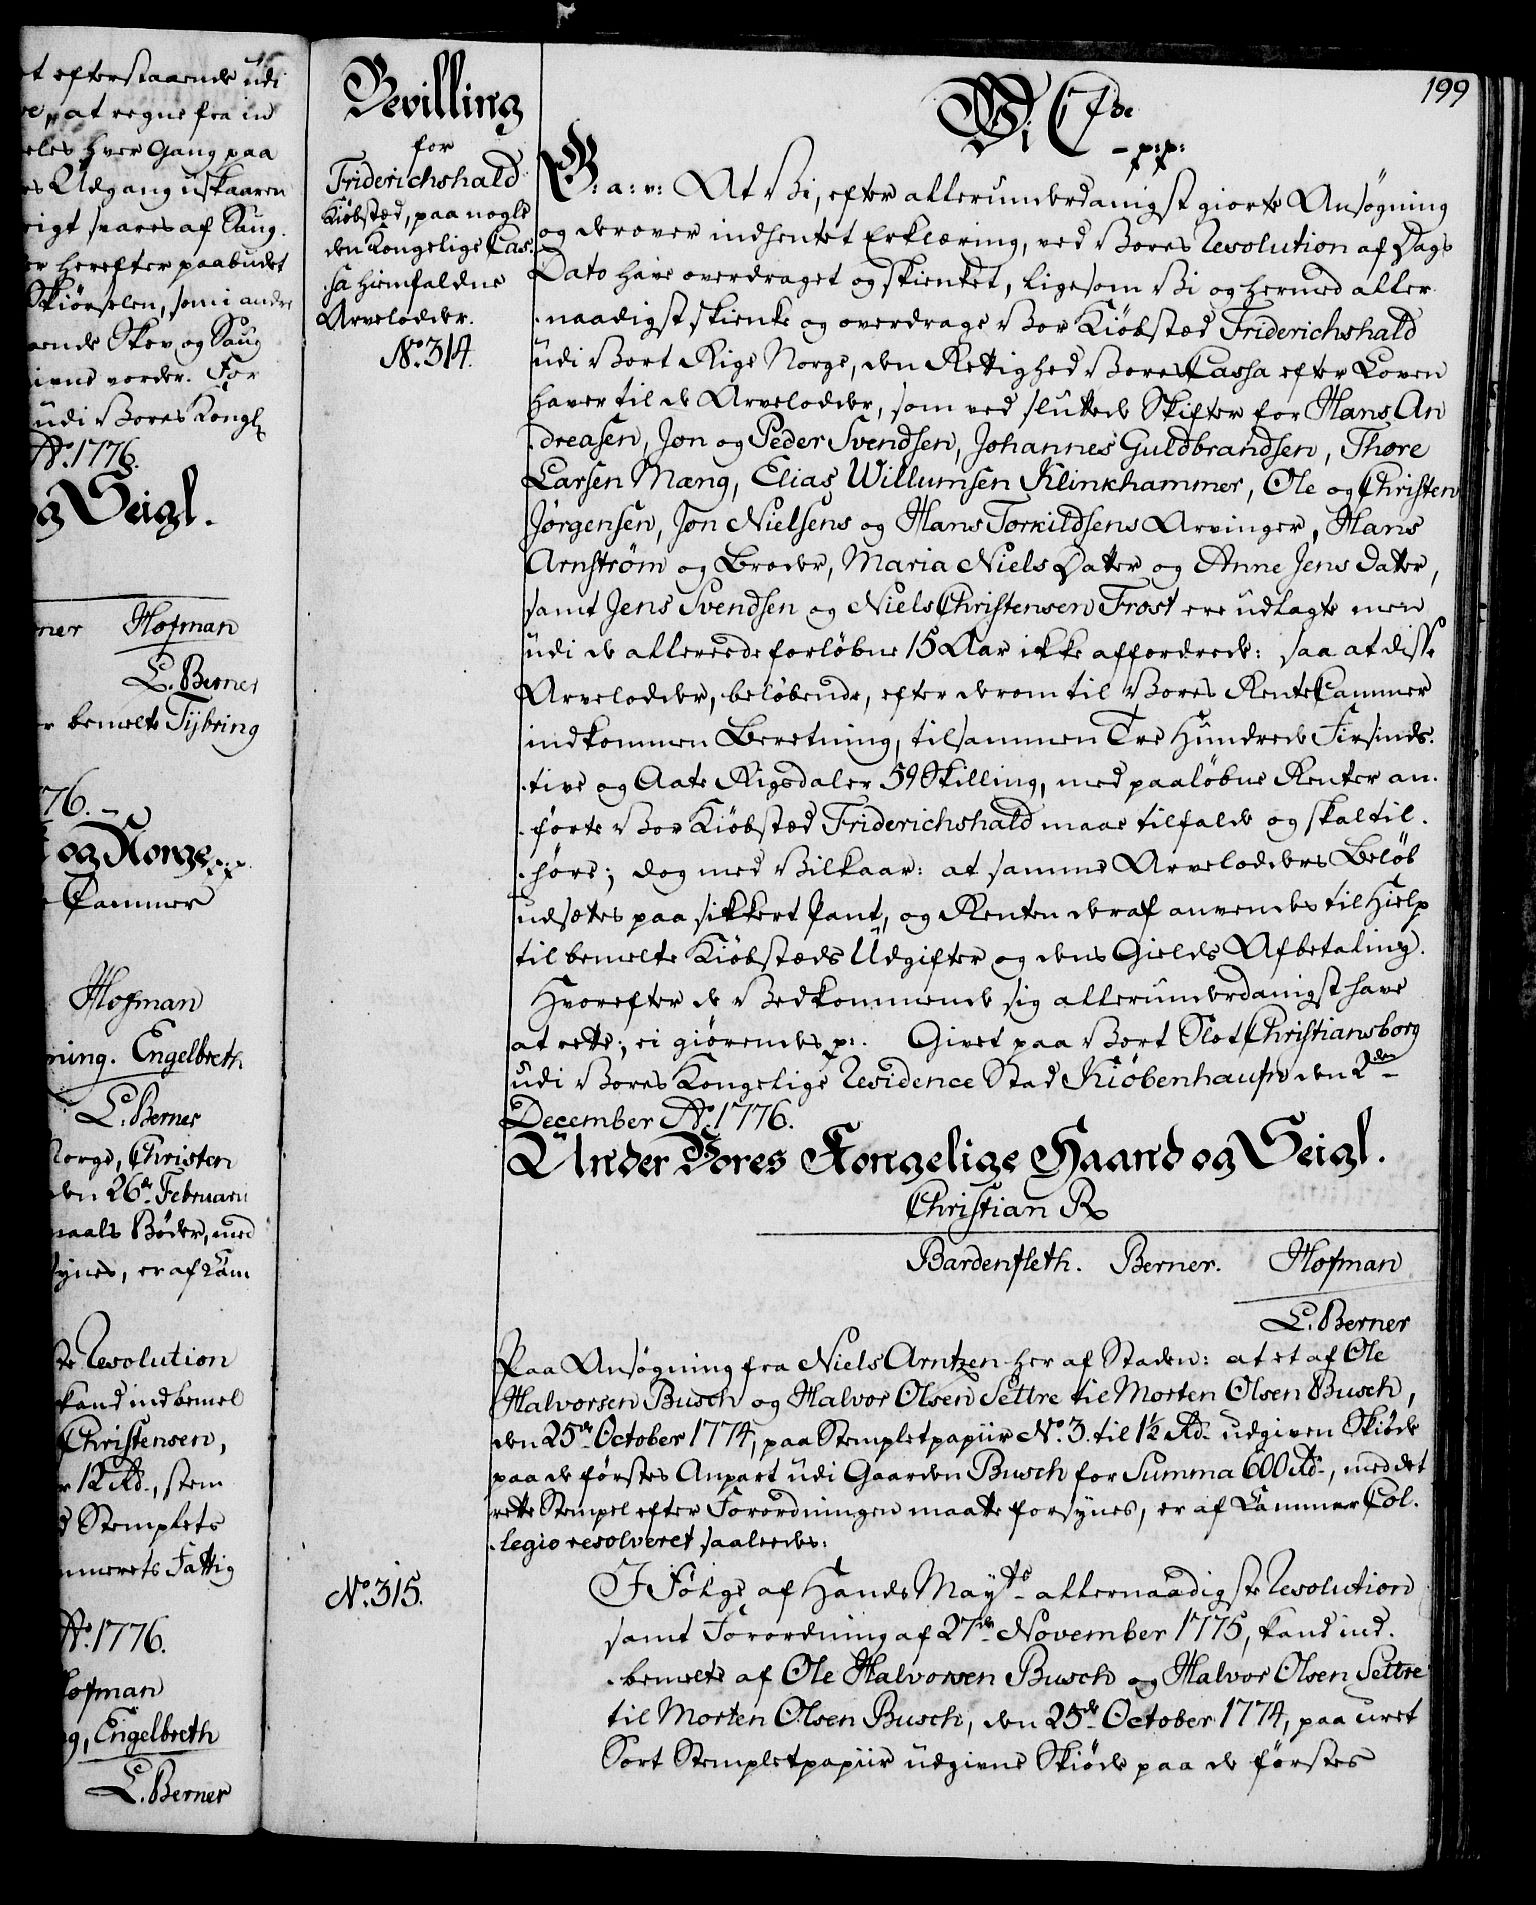 t efterstaaende udi
re, at regne fra in
eles hver Gang paa
es Udgang uskaaren
rigt svares af Saug-
er herefter paabudet
Skiørselen, som i andre
ende Skov og Saug
ivne vorder. For
udi Vores Kongl
Ao. 1776.
og Seigl.
ner Hofman
L. Berner
er bemelte Tijbring
76.
og Norge p.p.
Cammer
Hofman
ning. Engelbreth
L. Berner
Norge, Christen
den 26de Februarii
maals Bøder, med
synes, er af Cam
te Resolution
kand indbemel
Christensen,
r 12 Rd., stem
d Stemplets
mmerets Fattig
Ao. 1776.
Hofman
g, Engelbreth
L. Berner
199
Bevilling
for
Friderichshald
Kiøbstæd, paa nogle
den Kongelige Cas-
sa hiemfaldne
Arvelodder.
No. 314.
Wi C 7de
- p:p:
G: a: v: At Vi, efter allerunderdanigst giorte Ansøgning
og derover indhentet Erklæring, ved Vores Resolution af Dags
Dato have overdraget og skienket, ligesom Vi og hermed aller-
naadigst skienke og overdrage Vor Kiøbstæd Friderichshald
udi Vort Rige Norge, den Rettighed Vores Cassa efter Loven
haver til de Arvelodder, som ved sluttede Skifter for Hans An
dreasen, Jon og Peder Svendsen, Johannes Guldbrandsen, Thore
Larsen Mæng, Elias Willumsen Klinkhammer, Ole og Christen
Jørgensen, Jon Nielsens og Hans Torkildsens Arvinger, Hans
Arnstrøm og Broder, Maria Niels Datter og Anne Jens Datter,
samt Jens Svendsen og Niels Christensen Frost ere udlagte men
udi de allereede forløbne 15 Aar ikke affordrede: saa at disse
Arvelodder, beløbende, efter derom til Vores RenteCammer
indkommen Beretning, tilsammen Tre Hundrede Firsinds-
tive og Aate Rigsdaler 59 Skilling, med paaløbne Renter an-
førte Vor Kiøbstæd Friderichshald maae tilfalde og skal til-
høre; dog med Vilkaar: at samme Arvelodders Beløb
udsættes paa sikkert Pant, og Renten deraf anvendes til Hielp
til bemelte Kiøbstæds Udgifter og dens Gields Afbetaling.
Hvorefter de Vedkommende sig allerunderdanigst have
at rette; ei giørendes p:. Givet paa Vort Slot Christiansborg
udi Vores Kongelige Residence Stad Kiøbenhaufn den 2den
December Ao. 1776.
Under Vores Kongelige Haand og Seigl.
Christian R
Bardenfleth. Berner. Hofman
L. Berner
Paa Ansøgning fra Niels Arntzen her af Staden: at et af Ole
Halvorsen Busch og Halvor Olsen Settre til Morten Olsen Busch,
den 25de October 1774, paa Stemplet papiir No. 3. til 1½ Rd. udgiven Skiøde
paa de førstes Anpart udi Gaarden Busch for Summa 600 Rd., med det
rette Stempel efter Forordningen maatte forsynes, er af Cammer Col-
legio resolveret saaledes:
No. 315.
I Følge af Hands Mayts allernaadigste Resolution
samt Forordning af 27de November 1775, kand ind-
bemelte af Ole Halvorsen Busch og Halvor Olsen Settre
til Morten Olsen Busch, den 25de October 1774, paa uret
Sort Stemplet papiir udgivne Skiøde paa de førstes